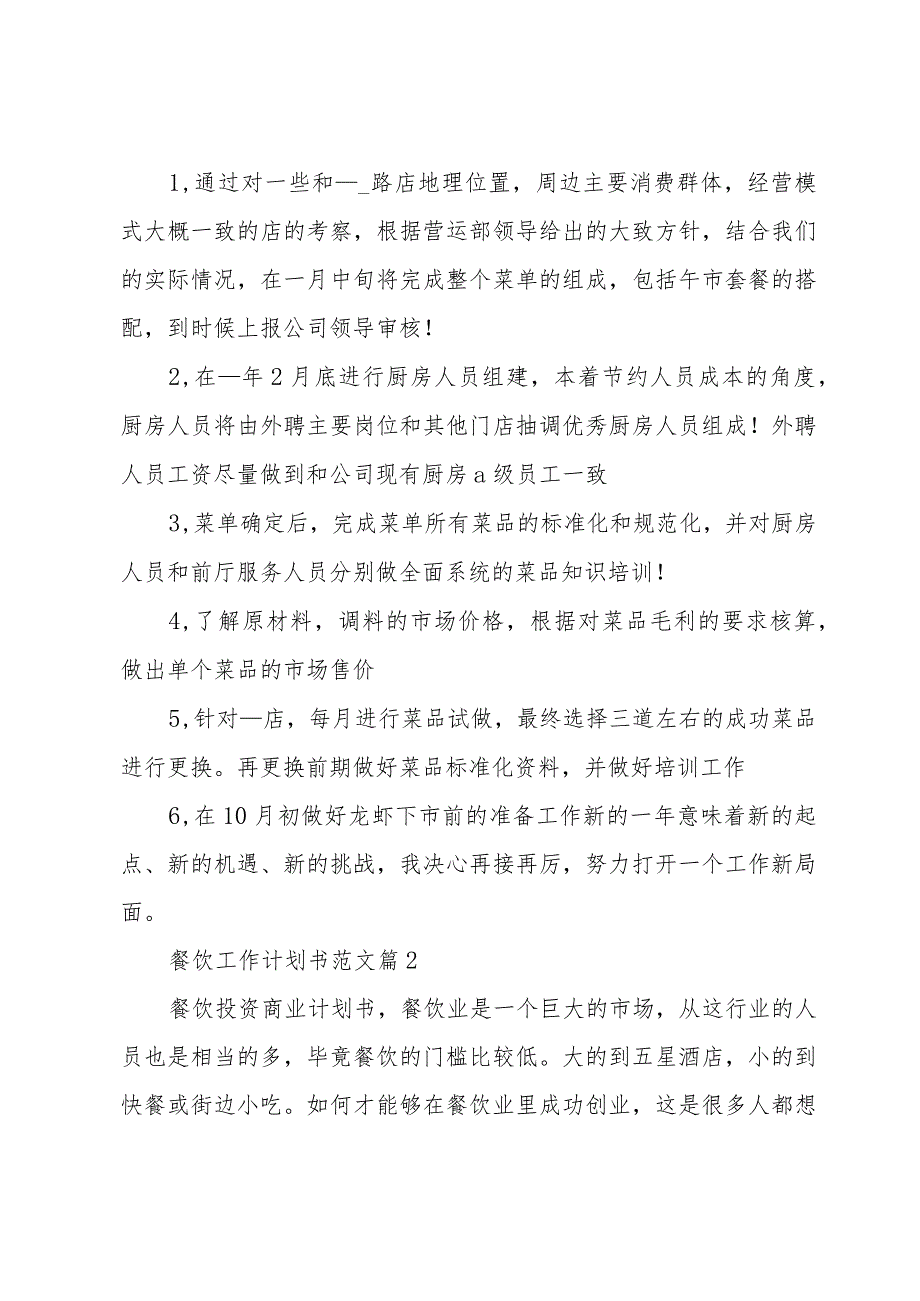 1,通过对一些和—_路店地理位置，周边主要消费群体，经营模
式大概一致的店的考察，根据营运部领导给出的大致方针，结合我们
的实际情况，在一月中旬将完成整个菜单的组成，包括午市套餐的搭
配，到时候上报公司领导审核！
2,在—年2月底进行厨房人员组建，本着节约人员成本的角度，
厨房人员将由外聘主要岗位和其他门店抽调优秀厨房人员组成！外聘
人员工资尽量做到和公司现有厨房a级员工一致
3,菜单确定后，完成菜单所有菜品的标准化和规范化，并对厨房
人员和前厅服务人员分别做全面系统的菜品知识培训！
4,了解原材料，调料的市场价格，根据对菜品毛利的要求核算，
做出单个菜品的市场售价
5,针对—店，每月进行菜品试做，最终选择三道左右的成功菜品
进行更换。再更换前期做好菜品标准化资料，并做好培训工作
6,在10月初做好龙虾下市前的准备工作新的一年意味着新的起
点、新的机遇、新的挑战，我决心再接再厉，努力打开一个工作新局
面。
餐饮工作计划书范文篇2
餐饮投资商业计划书，餐饮业是一个巨大的市场，从这行业的人
员也是相当的多，毕竟餐饮的门槛比较低。大的到五星酒店，小的到
快餐或街边小吃。如何才能够在餐饮业里成功创业，这是很多人都想